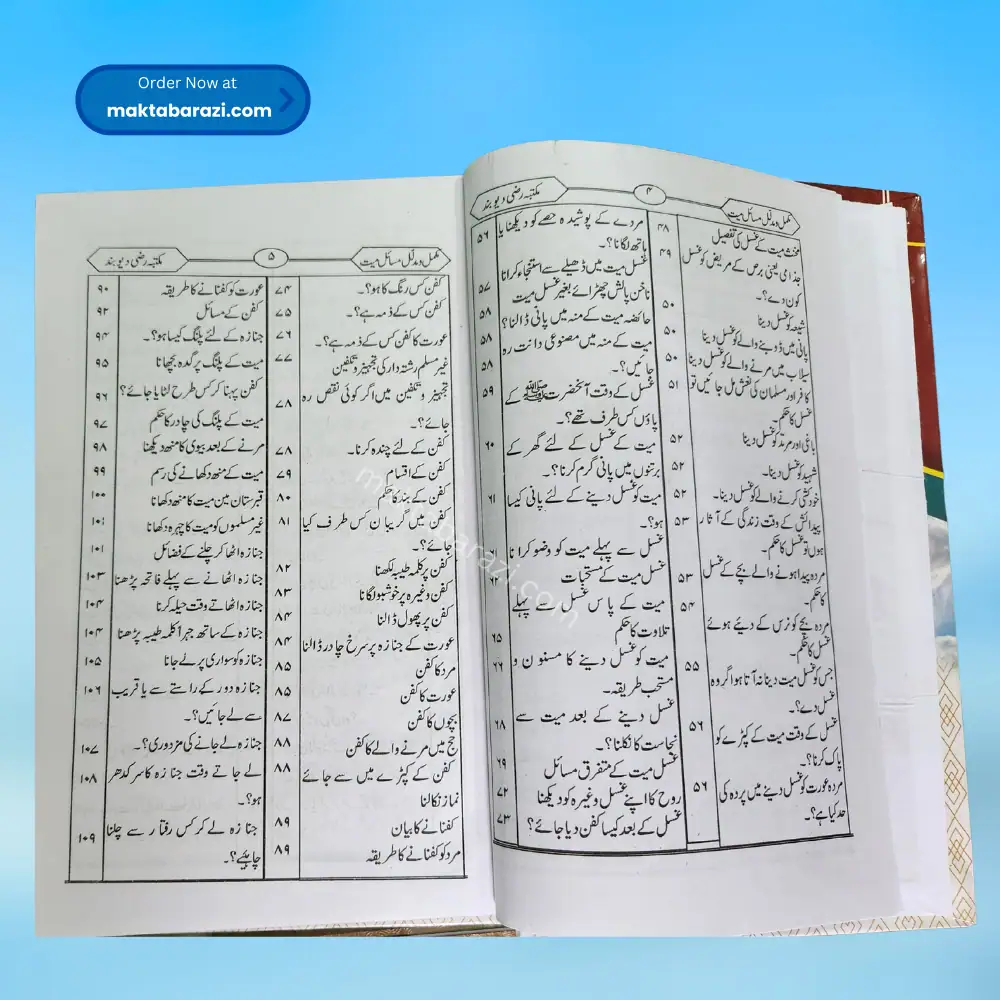 Order Now at
maktabarazi.com
مکتبہ رضی دیوبند
۴
مکمل و مدلل مسائل میت
مخنث میت کے غسل کی تفصیل ۴۸
جذامی یعنی برص کے مریض کو غسل ۴۹
کون دے؟۔
شیعہ کو غسل دینا ۵۰
پانی میں ڈوبنے والے کو غسل دینا ۵۰
سیلاب میں مرنے والے کو غسل دینا ۵۰
کافر اور مسلمان کی نعش مل جائیں تو ۵۱
غسل کا حکم۔
باغی اور مرتد کو غسل دینا ۵۲
شہید کو غسل دینا۔ ۵۲
خودکشی کرنے والے کو غسل دینا۔ ۵۲
پیدائش کے وقت زندگی کے آثار ۵۳
ہوں تو غسل کا حکم۔
مردہ پیدا ہونے والے بچے کے غسل ۵۳
کا حکم۔
مردہ بچے کو نرس کے دیئے ہوئے ۵۴
غسل کا حکم۔
جس کو غسل میت دینا نہ آتا ہو اگر وہ ۵۵
غسل دے؟۔
غسل کے وقت میت کے کپڑے کو ۵۶
پاک کرنا؟۔
مردہ عورت کو غسل دینے میں پردہ کی ۵۶
حد کیا ہے؟۔
مردے کے پوشیدہ حصے کو دیکھنا یا ۵۶
ہاتھ لگانا؟۔
غسل میت میں ڈھیلے سے استنجاء کرانا ۵۷
ناخن پالش چھڑائے بغیر غسل میت ۵۸
حائضہ میت کے منہ میں پانی ڈالنا؟ ۵۸
میت کے منہ میں مصنوعی دانت رہ ۵۸
جائیں؟۔
غسل کے وقت آنحضرت ﷺ کے ۵۹
پاؤں کس طرف تھے؟۔
میت کے غسل کے لئے گھر کے ۶۰
برتنوں میں پانی گرم کرنا؟۔
میت کو غسل دینے کے لئے پانی کیسا ۶۱
ہو؟۔
غسل سے پہلے میت کو وضو کرانا
غسل میت کے مستحبات ۶۲
میت کے پاس غسل سے پہلے
تلاوت کا حکم ۶۵
میت کو غسل دینے کا مسنون و ۶۶
مستحب طریقہ۔
غسل دینے کے بعد میت سے ۶۸
نجاست کا نکلنا؟۔
غسل میت کے متفرق مسائل ۶۹
روح کا اپنے غسل وغیرہ کو دیکھنا ۷۲
غسل کے بعد کیسا کفن دیا جائے؟ ۷۳
مکمل و مدلل مسائل میت
۵
مکتبہ رضی دیوبند
کفن کس رنگ کا ہو؟۔ ۷۴
کفن کس کے ذمہ ہے؟۔ ۷۵
عورت کا کفن کس کے ذمہ ہے؟۔ ۷۶
غیر مسلم رشتہ دار کی تجہیز و تکفین ۷۷
تجہیز و تکفین میں اگر کوئی نقص رہ ۷۸
جائے؟۔
کفن کے لئے چندہ کرنا۔ ۷۸
کفن کے اقسام ۷۹
کفن کے بند کا حکم ۸۰
کفن میں گریبان کس طرف کیا ۸۱
جائے؟۔
کفن پر کلمہ طیبہ لکھنا ۸۲
کفن وغیرہ پر خوشبو لگانا ۸۳
کفن پر پھول ڈالنا ۸۴
عورت کے جنازہ پر سرخ چادر ڈالنا ۸۴
مرد کا کفن ۸۵
عورت کا کفن ۸۵
بچوں کا کفن ۸۷
حج میں مرنے والے کا کفن ۸۸
کفن کے کپڑے میں سے جائے ۸۸
نماز نکالنا
کفنانے کا بیان ۸۹
مرد کو کفنانے کا طریقہ ۸۹
عورت کو کفنانے کا طریقہ ۹۰
کفن کے مسائل ۹۲
جنازہ کے لئے پلنگ کیسا ہو؟۔ ۹۴
میت کے پلنگ پر گدہ بچھانا ۹۵
کفن پہنا کر کس طرح لٹایا جائے؟ ۹۶
میت کے پلنگ کی چادر کا حکم ۹۷
مرنے کے بعد بیوی کا منھ دیکھنا ۹۸
میت کے منھ دکھانے کی رسم ۹۹
قبرستان مین میت کا منھ دکھانا ۱۰۰
غیر مسلموں کو میت کا چہرہ دکھانا ۱۰۱
جنازہ اٹھا کر چلنے کے فضائل ۱۰۱
جنازہ اٹھانے سے پہلے فاتحہ پڑھنا ۱۰۳
جنازہ اٹھاتے وقت حیلہ کرنا ۱۰۴
جنازہ کے ساتھ جہراً کلمہ طیبہ پڑھنا ۱۰۴
جنازہ کو سواری پر لے جانا ۱۰۵
جنازہ دور کے راستے سے یا قریب ۱۰۶
سے لے جائیں؟۔
جنازہ لے جانے کی مزدوری؟۔ ۱۰۷
لے جاتے وقت جنازہ کا سر کدھر ۱۰۸
ہو؟۔
جنازہ لے کر کس رفتار سے چلنا ۱۰۹
چاہیئے؟۔
maktabarazi.com